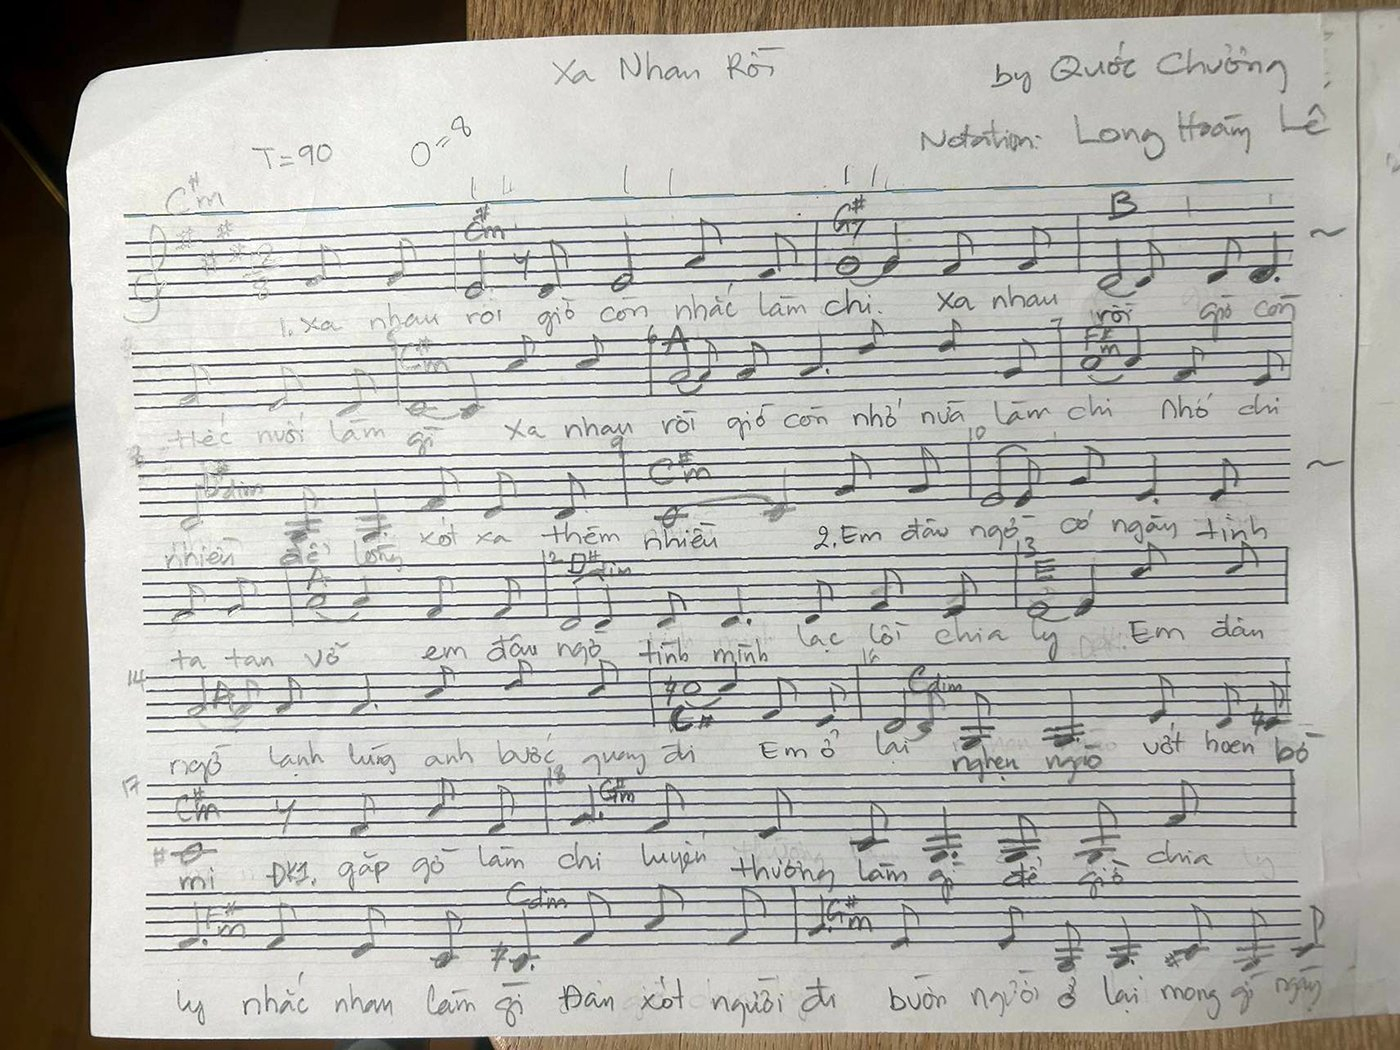 Xa Nhau Rồi
by Quốc Chưởng
Notation: Long Hoàng Lê
T=90 O=8
C#m
12/8 C#m G#7 B
1. Xa nhau rồi giờ còn nhắc làm chi. Xa nhau rồi giờ còn
C#m 6 A 7 F#m
tiếc nuối làm gì Xa nhau rồi giờ còn nhớ nữa làm chi Nhớ chi
8 D#dim 9 C#m 10
nhiều để lòng xót xa thêm nhiều 2. Em đâu ngờ có ngày tình
A 12 D#dim 13 E
ta tan vỡ em đâu ngờ tình mình lạc lối chia ly Em đâu
14 A C# 16 Cdim
ngờ lạnh lùng anh bước quay đi Em ở lại nghẹn ngào ướt hoen bờ
17 C#m 18 G#m
mi ĐK1. gặp gỡ làm chi luyến thương làm gì để giờ chia
F#m Cdim G#m
ly nhắc nhau làm gì Đàn xót người đi buồn người ở lại mong gì ngày